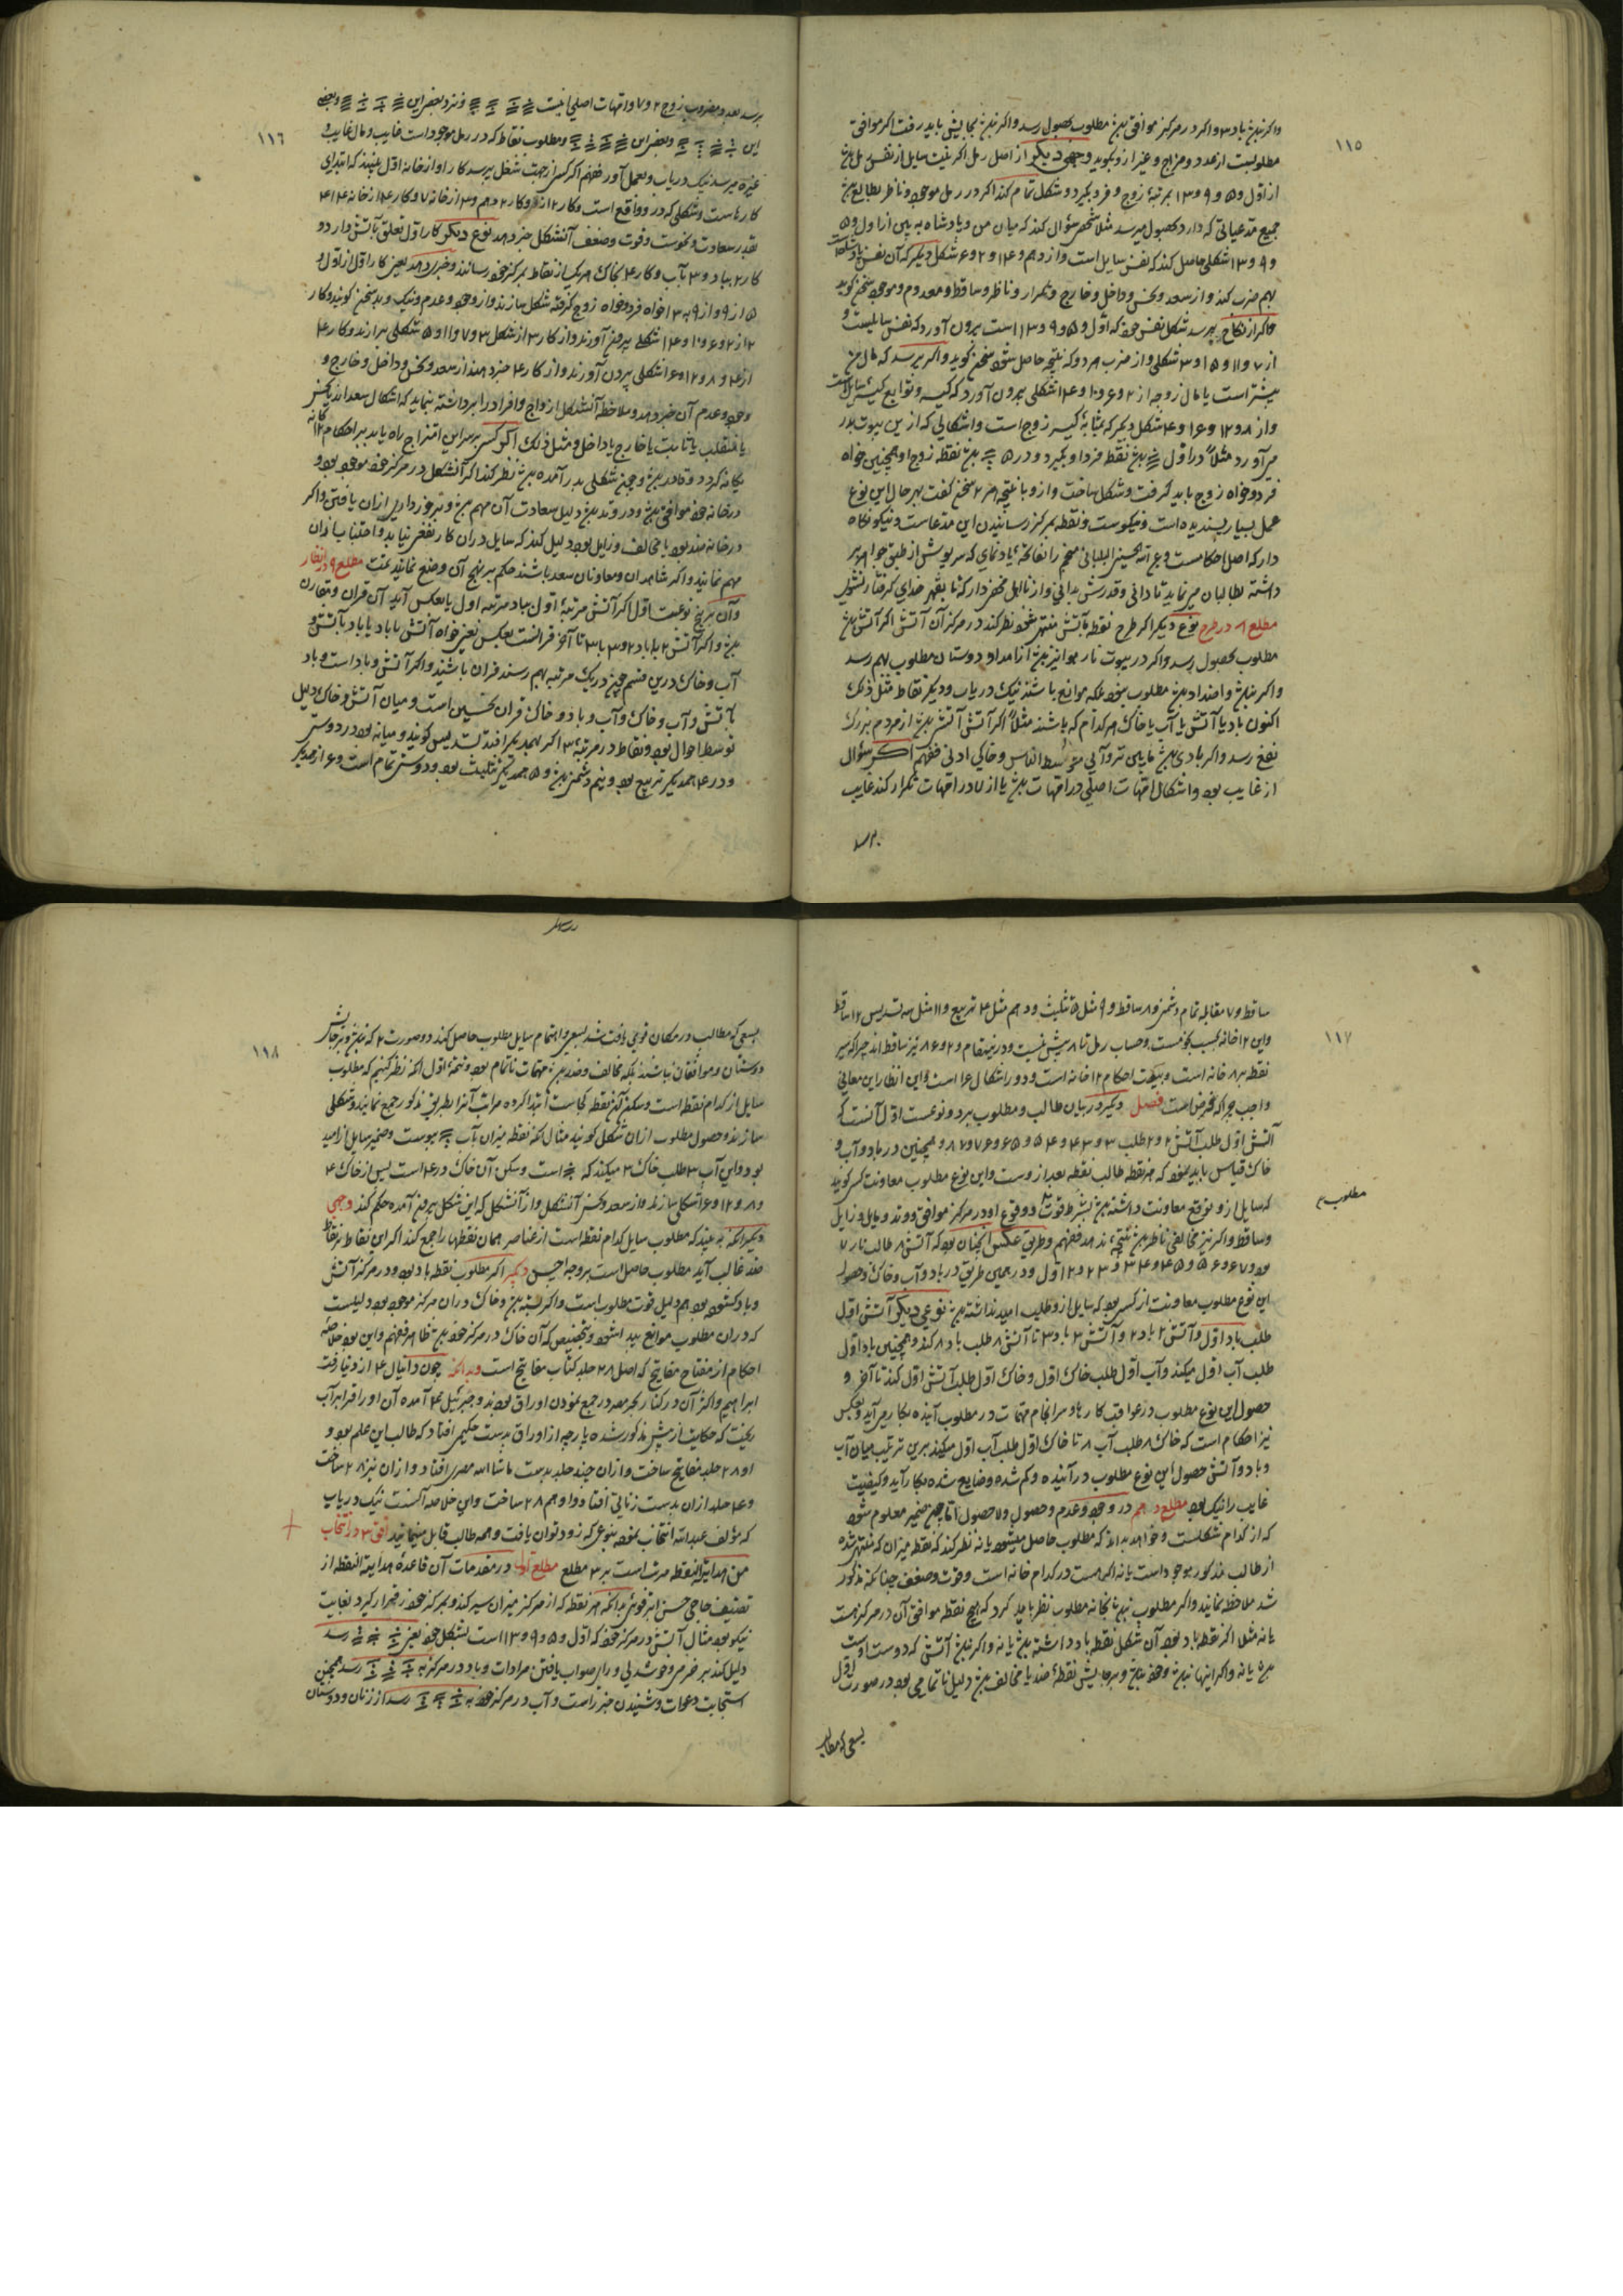 ١١٥
مطلوبست از عدد و مزاج و غیر از و بگوید وجهی دیگر از اصل رمل اگر نیت سایل از نفس رمل
از اول و ۵ و ۹ و ۱۳ بمرتبهٔ زوج و فرد بگیرد و شکل تمام کند اگر در رمل موجود و ناظر بطالع
جمیع مدعیاتی که دارد بحصول میرسد مثلا شخصی سؤال کند که میان من و پادشاه به بین از اول و ۵
و ۹ و ۱۳ شکلی حاصل کند که نفس سایل است و از دهم و ۱۴ و ۲ و ۶ شکل دیگر که آن نفس پادشاه
بهم ضرب کند و از سعد و نحس و داخل و خارج و تکرار و ناظر و ساقط و معدوم و موجود سخن گوید
و اگر از نکاح پرسد شکل نفس خود که اول و ۵ و ۹ و ۱۳ است بیرون آورد که نفس سایلست و
از ۷ و ۱۱ و ۱۵ و ۳ شکلی و از ضرب هر دو که نتیجه حاصل شود سخن گوید و اگر پرسد که مال من
بیشتر است یا مال زوجه از ۲ و ۶ و ۱۰ و ۱۴ شکلی بیرون آورد که کیسه و توابع کیسه سایل است
و از ۸ و ۱۲ و ۱۶ و ۴ شکل دیگر که بمثابهٔ کیسه زوج است و اشکالی که از این بیوت بدر
می آورد مثلاً در اول نقطه فرد او بگیرد و در ۵ نقطه زوج او همچنین خواه
فرد و خواه زوج باید گرفت و شکل ساخت و از و با نتیجه هر ۲ سخن گفت بهر حال این نوع
عمل بسیار پسندیده است و نیکوست و نقطه بمرکز رسانیدن این مدعاست و نیکو نگاه
دار که اصل احکامست
داشته بطالبان می نماید تا دانی و قدرش بدانی و از نااهل مخفی دار که تا بقهر خدای گرفتار نشوی
مطلع ۸ در طرح نوع دیگر اگر طرح نقطه بآتش منتهی شود نظر کند در مرکز آن آتش اگر آتش
مطلوب بحصول رسد و اگر در بیوت نار هوا نیز از امداد دوستان مطلوب بهم رسد
و اگر نباشد و اضداد مطلوب نبود بلکه موانع باشند نیک دریاب و دیگر نقاط مثل ذلک
اکنون باد یا آتش یا آب یا خاک هر کدام که باشند مثلاً اگر آتش آتش از مردم بزرگ
نفع رسد و اگر بادی مابین تر و آبی متوسط الناس و خاکی ادنی فافهم اگر سؤال
از غایب بود و اشکال امهات اصلی در امهات یا از ۷ در امهات تکرار کند غایب
برسد
١١٦
این و بعضی این و مطلوب نقاط که در رمل موجود است غایب و مال غایب و
غیره میرسد نیک دریاب و بعمل آور فافهم اگر کسی از جهت شغل پرسد کار او از خانه اول ببینند که ابتدای
کارهاست و شکلی که در و واقع است و کار ۲ از ۲ و کار ۳ دهم و ۳ از خانه ۷ و کار ۴ از خانه ۴
بقدر سعادت و نحوست و قوت و ضعف آنشکل خبر دهد نوع دیگر کار اول تعلق بآتش دارد و
کار ۲ بباد و ۳ بآب و کار ۴ بخاک هر یک از نقاط بمرکز خود رسانند و خبر دهد یعنی کار اول از اول و
۵ از ۹ و از ۹ و ۱۳ خواه فرد و خواه زوج گرفته شکل سازند و از وجود و عدم و نیک و بد سخن گویند و کار
۲ از ۲ و ۶ و ۱۰ و ۱۴ شکلی بیرون آورند و از کار ۳ از شکل ۳ و ۷ و ۱۱ و ۱۵ شکلی برآرند و کار ۴
از ۴ و ۸ و ۱۲ و ۱۶ شکلی بیرون آورند و از کار ۴ خبر دهند از سعد و نحس و داخل و خارج و
وجود و عدم آن خبر دهد و ملاحظه آنشکل ازواج و افراد را برداشته نماید که اشکال سعداند یا نحس
یا منقلب یا ثابت یا خارج یا داخل و مثل ذلک اگر کسی بر سر این امتزاج راه یابد بر احکام ۱۲ گانه
یگانه گردد و قادر و چون شکلی بدر آمده نظر کند اگر آنشکل در مرکز خود موجود بود و
در خانه خود موافق و در وتد دلیل سعادت آن مهم و برخورداری از آن یافتن و اگر
در خانه ضد بود یا مخالف و زایل بود دلیل کند که سایل در آن کار نفعی نیابد و اجتناب از آن
مهم نمایند و اگر شاهدان و معاونان سعد باشند حکم بر نهج آن وضع نمایند تمت مطلع ۹ در انظار
و آن بر پنج نوعست اول اگر آتش مرتبهٔ اول بباد مرتبه اول یا بعکس آید آن قران و تقارن
و اگر آتش ۲ با باد ۲ و ۳ با ۳ تا آخر قرانست بعکس یعنی خواه آتش با باد یا باد با آتش و
آب و خاک درین قسم چون در یک مرتبه بهم رسند قران باشند و اگر آتش و باد است و باد
با آتش و آب و خاک و آب و باد و خاک قران نحسین است و میان آتش و خاک دلیل
توسط احوال بود و نقاط در مرتبهٔ ۳ اگر بهمدیگر افتد تسدیس گویند و میانه بود در دوستی
و در ۴ همدیگر تربیع بود و نیم دشمنی و ۵ همدیگر تثلیث بود و دوستی تمام است و ۶ از همدیگر
١١٧
ساقط و ۷ مقابله تمام دشمنی و ۸ ساقط و ۹ مثل ۵ تثلیث و دهم مثل ۴ تربیع و ۱۱ مثل سه تسدیس ۱۲ ساقط
و این ۱۲ خانه بحسب نجومست و حساب رمل تا ۸ بیش نیست و درینمقام ۲ و ۶ و ۸ نیز ساقط اند چرا که سیر
نقطه بر ۸ خانه است و بجهت احکام ۱۲ خانه است و دور اشکال ۱۶ است و این انظار این معانی
واجب چرا که غرض است فصل دیگر در بیان طالب و مطلوب بر دو نوعست اول آنست که
آتش اول طلب آتش ۲ و ۲ طلب ۳ و ۳ ۴ و ۴ ۵ و ۵ ۶ و ۶ ۷ و ۷ ۸ و همچنین در باد و آب و
خاک قیاس باید نمود که هر نقطه طالب نقطه بعد از وست و این نوع مطلوب معاونت کسی گویند
مطلوب
که سایل از و توقع معاونت داشته بشرط قوت و وقوع او در مرکز موافق و وتد و مایل و زایل
و ساقط و اگر نیز مخالفی ناظر نتیجه ندهد فافهم و طریق عکس آنچنان بود که آتش ۸ طالب نار ۷
بود و ۷ ۶ و ۶ ۵ و ۵ ۴ و ۴ ۳ و ۳ ۲ و ۲ اول و در همین طریق در باد و آب و خاک و حصول
این نوع مطلوب معاونت از کسی بود که سایل از و طلب امید نداشته نوعی دیگر آتش اول
طلب باد اول و آتش ۲ باد ۲ و آتش ۳ باد ۳ تا آتش ۸ طلب باد ۸ کند و همچنین باد اول
طلب آب اول میکند و آب اول طلب خاک اول و خاک اول طلب آتش اول کند تا آخر و
حصول این نوع مطلوب در عواقب کارها و سرانجام مهمات در مطلوب آینده بکار می آید و بعکس
نیز احکام است که خاک ۸ طلب آب ۸ تا خاک اول طلب آب اول میکند برین ترتیب میان آب
و باد و آتش حصول این نوع مطلوب در آینده و گم شده و ضایع شده بکار آید و کیفیت
غایب را نیک بود مطلع دهم در وجود و عدم و حصول و لا حصول اما چون ضمیر معلوم شود
که از کدام شکلست و خواهد بداند که مطلوب حاصل میشود یا نه نظر کند که نقطه میزان که منتهی شده
از طالب مذکور موجود است یا نه اگر هست در کدام خانه است و قوت و ضعف چنانکه مذکور
شد ملاحظه نمایند و اگر مطلوب نبود بخانه مطلوب نظر باید کرد که هیچ نقطه موافق آن در مرکز هست
یا نه مثلا اگر نقطه باد بود آن شکل نقطه باد داشته یا نه و اگر نبود آتشی که دوست اوست
یا نه و اگر اینها نبود و خود و بر جایش نقطهٔ ضد یا مخالف دلیل ناتمامی بود در صورت اول
بسعی که مطالب
١١٨
بسعی که مطالب در مکان قوی یافت شد بسعی و اهتمام سایل مطلوب حاصل کند و در صورت ۲ که نبود و بر جایش
دوستان و موافقان نباشند بلکه مخالف و ضد مهمات ناتمام بود و تتمهٔ اول آنکه نظر کنیم که مطلوب
سایل از کدام نقطه است و مسکن آن نقطه کجاست ابتدا کرده مراتب آنرا بطریق مذکور جمع نمایند و شکلی
سازند و حصول مطلوب از آن شکل گویند مثال آنکه نقطه میزان بآب پیوست و ضمیر سایل از امید
بود و این آب ۳ طلب خاک ۳ میکند که است و مسکن آن خاک در ۴ است پس از خاک ۴
و ۸ و ۱۲ و ۱۶ شکلی سازند و از سعد و نحس آنشکل و از آنشکل که این شکل بیرون آمده حکم کند وجهی
دیگر آنکه ببیند که مطلوب سایل کدام نقطه است از عناصر همان نقطها را جمع کند اگر این نقاط بر نقاط
ضد غالب آید مطلوب حاصل است بر وجه احسن دیگر اگر مطلوب نقطه باد بود و در مرکز آتش
و باد گشوده بود هم دلیل قوت مطلوب است و اگر بسته و خاک در آن مرکز موجود بود دلیلست
که در آن مطلوب موانع پیدا شود و بتخصیص که آن خاک در مرکز خود ظاهر فافهم و این بود خلاصه
احکام از مفتاح مفاتیح که اصل ۲۸ جلد کتاب مفاتیح است و بدانکه چون دانیال ع از دنیا رفت
ریخت که حکایت از پیش مذکور شده پارچه از اوراق بدست حکیمی افتاد که طالب این علم بود و
او ۲۸ جلد مفاتیح ساخت و از آن چند جلد بدست ماشاالله مصری افتاد و از آن نیز ۲۸ ساخت
و ۴ جلد از آن بدست زناتی افتاد و او هم ۲۸ ساخت و این خلاصه آنست نیک دریاب
که مؤلف عبدالله انتخاب نموده بنوعی که زود توان یافت و همه طالب قابل میخمانید افق ۳ در انتخاب
من هدایة النقطه مرتب است بر ۳ مطلع مطلع اول در مقدمات آن قاعدهٔ هدایة النقطه از
تصنیف حاجی حسن بدانکه هر نقطه که از مرکز میزان سیر کند و بمرکز خود قرار گیرد بغایت
نیکو بود مثال آتش در مرکز خود که اول و ۵ و ۹ و ۱۳ است بشکل خود یعنی رسد
دلیل کند بر خرمی و خوشدلی و رای صواب یافتن مرادات و باد در مرکز به رسد همچنین
استجابت دعوات و شنیدن خبر راست و آب در مرکز خود به رسد از زنان و دوستان